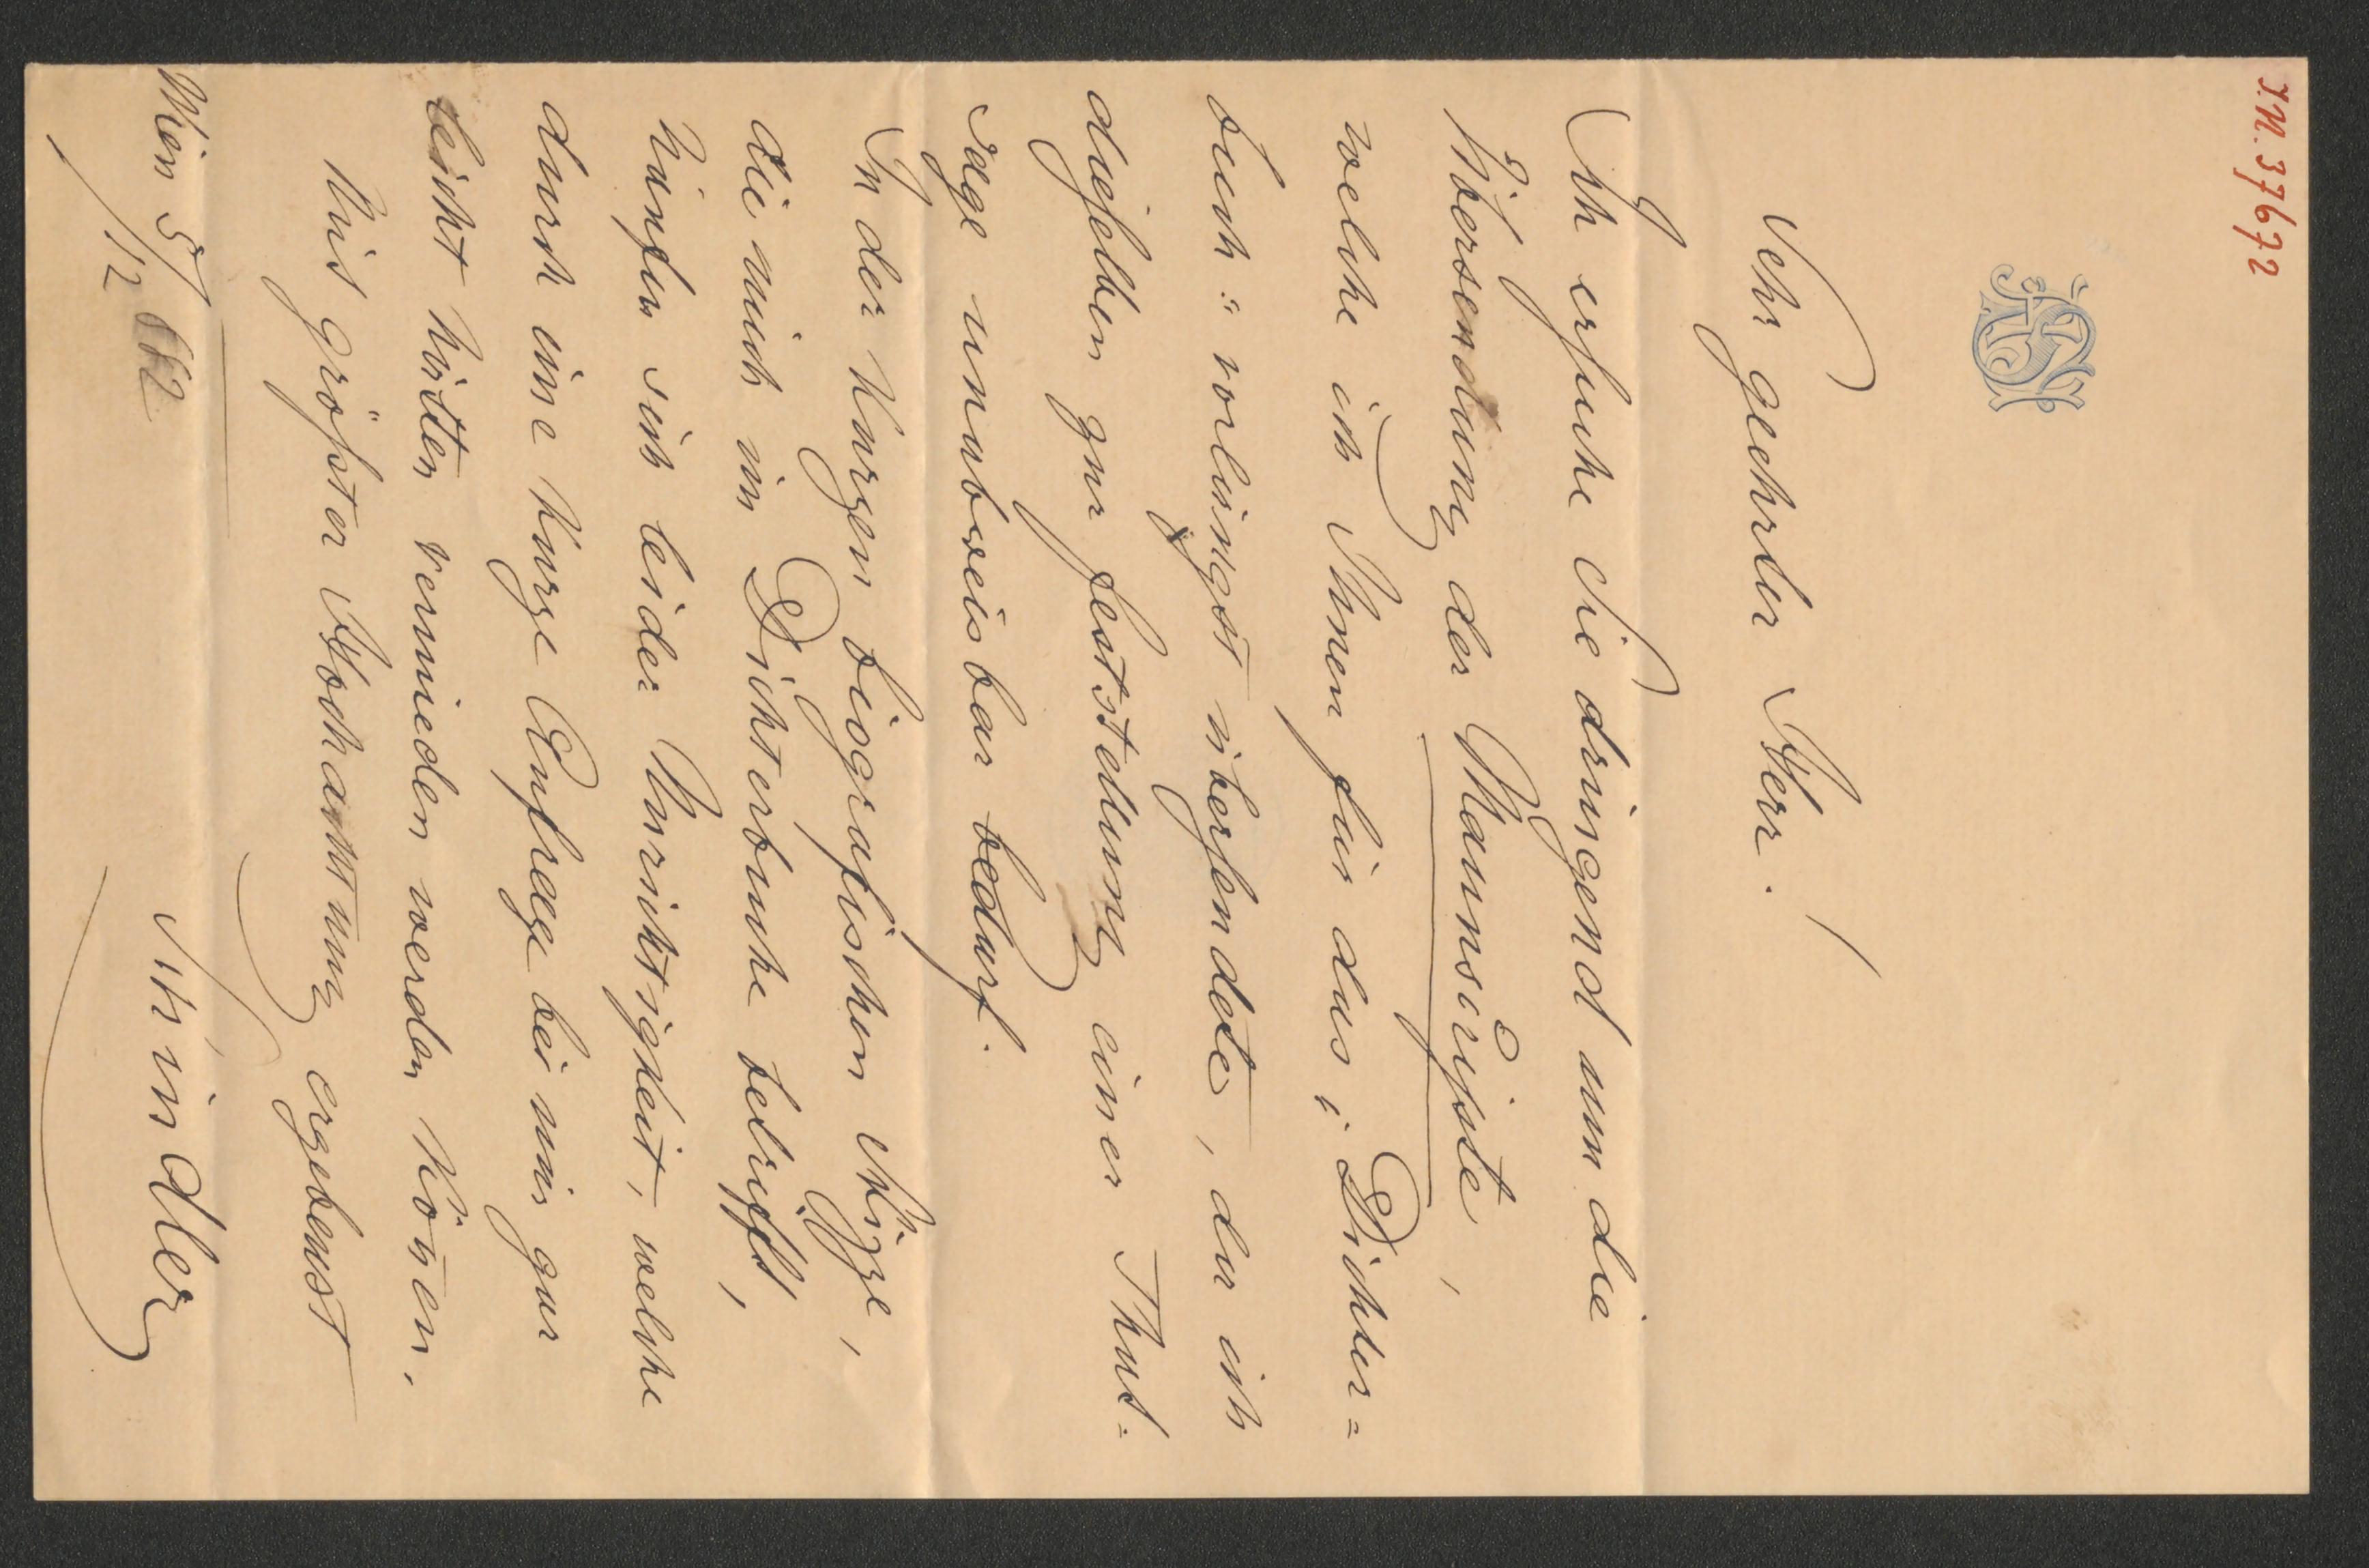 I.N. 37672
Sehr geehrter Herr!
Ich ersuche Sie dringend um die
Übersendung der Manuscripte,
welche ich Ihnen für das „Dichter=
buch“ vorlängst übersendete, da ich
dieselben zur Feststellung einer Thut=
sage unabweisbar bedarf.
In der kurzen biografischen Skizze,
die mich im Dichterbuche betrifft,
häufen sich leider Unrichtigkeit, welche
durch eine kurze Anfrage bei mir gar
leicht hätten vermieden werden können.
Mit größter Hochachtung ergebenst
Wien 5/12 882
Schindler